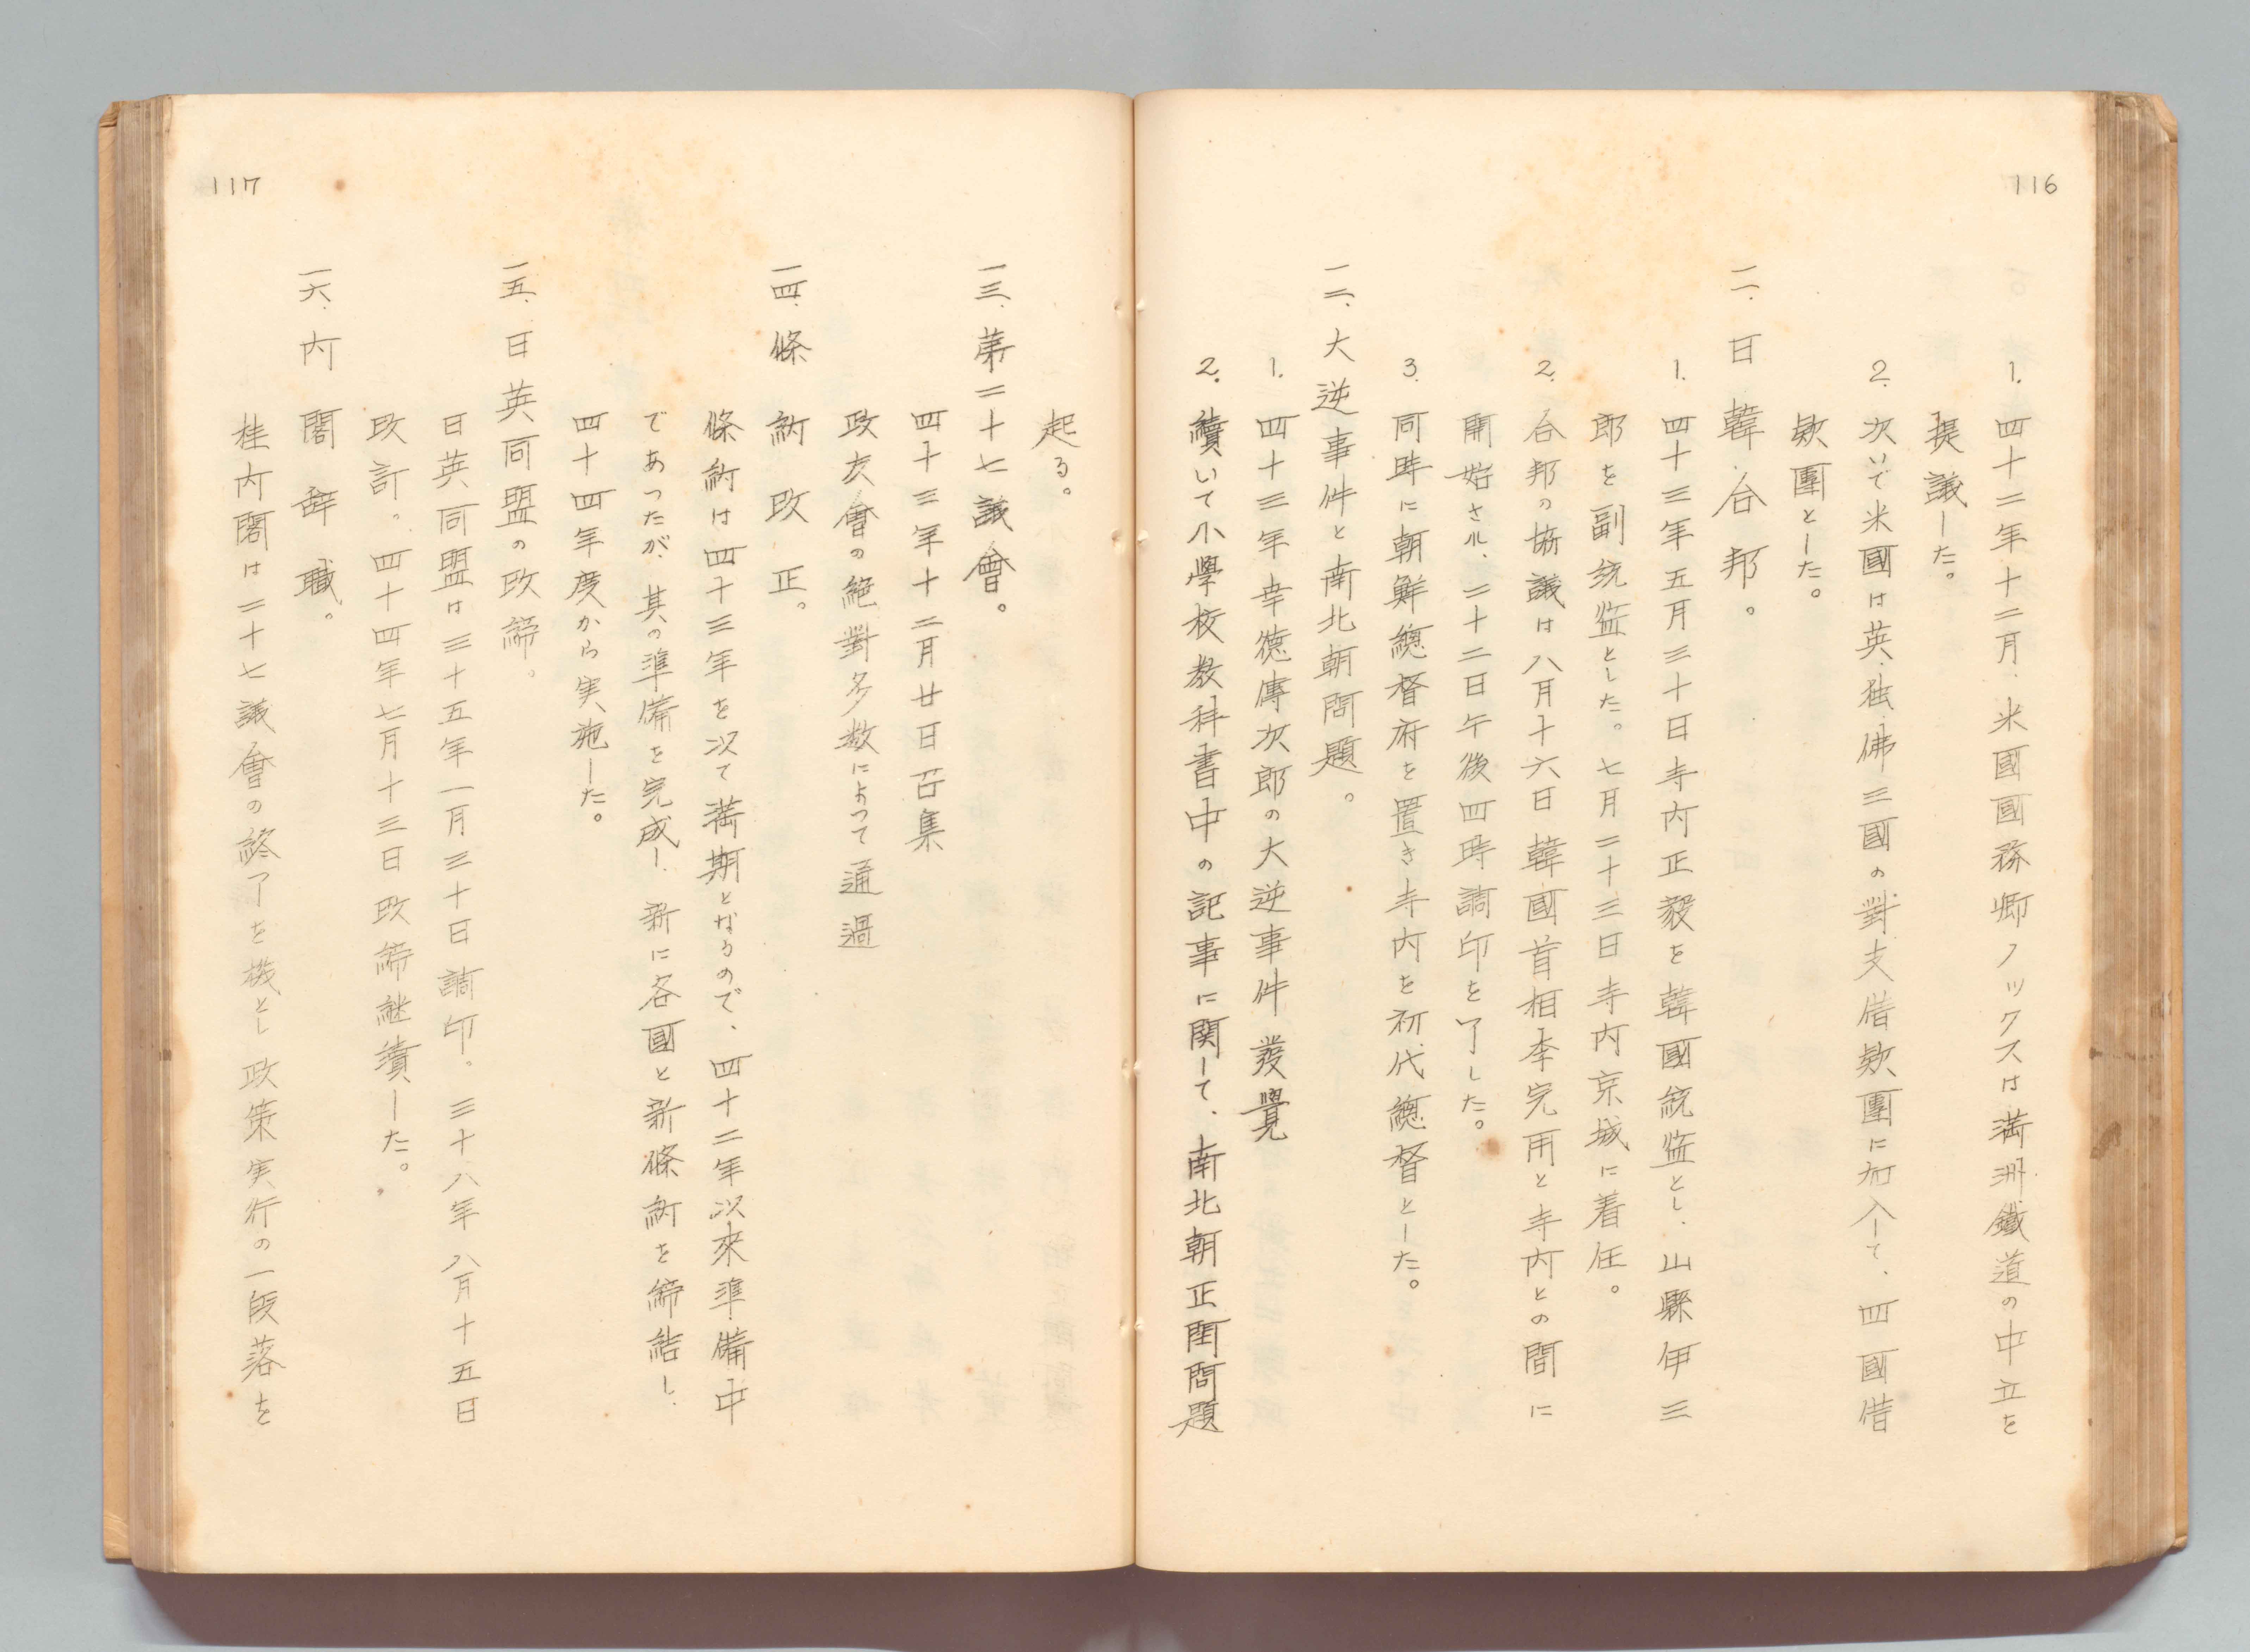 116
1. 四十二年十二月、米國國務卿ノックスは満洲鐵道の中立を
提議した。
2. 次いで米國は英、独、佛三國の對支借款團に加入して、四國借
款團とした。
一一、日韓合邦。
1. 四十三年五月三十日寺内正毅を韓國統監とし、山縣伊三
郎を副統監とした。七月二十三日寺内京城に着任。
2. 合邦の協議は八月十六日韓國首相李完用と寺内との間に
開始さル、二十二日午後四時調印を了した。
3. 同時に朝鮮總督府を置き寺内を初代總督とした。
一二、大逆事件と南北朝問題。
1. 四十三年幸德傳次郎の大逆事件發覺
2. 續いて小學校教科書中の記事に関して、南北朝正閏問題
117
起る。
一三、第二十七議會。
四十三年十二月廿日召集
政友會の絶對多数によつて通過
一四、條約改正。
條約は四十三年を以て満期となるので、四十二年以來準備中
であつたが、其の準備を完成し、新に各國と新條約を締結し、
四十四年度から実施した。
一五、日英同盟の改締。
日英同盟は三十五年一月三十日調印。三十八年八月十五日
改訂。四十四年七月十三日改締継續した。
一六、内閣辞職。
桂内閣は二十七議會の終了を機とし政策実行の一段落を